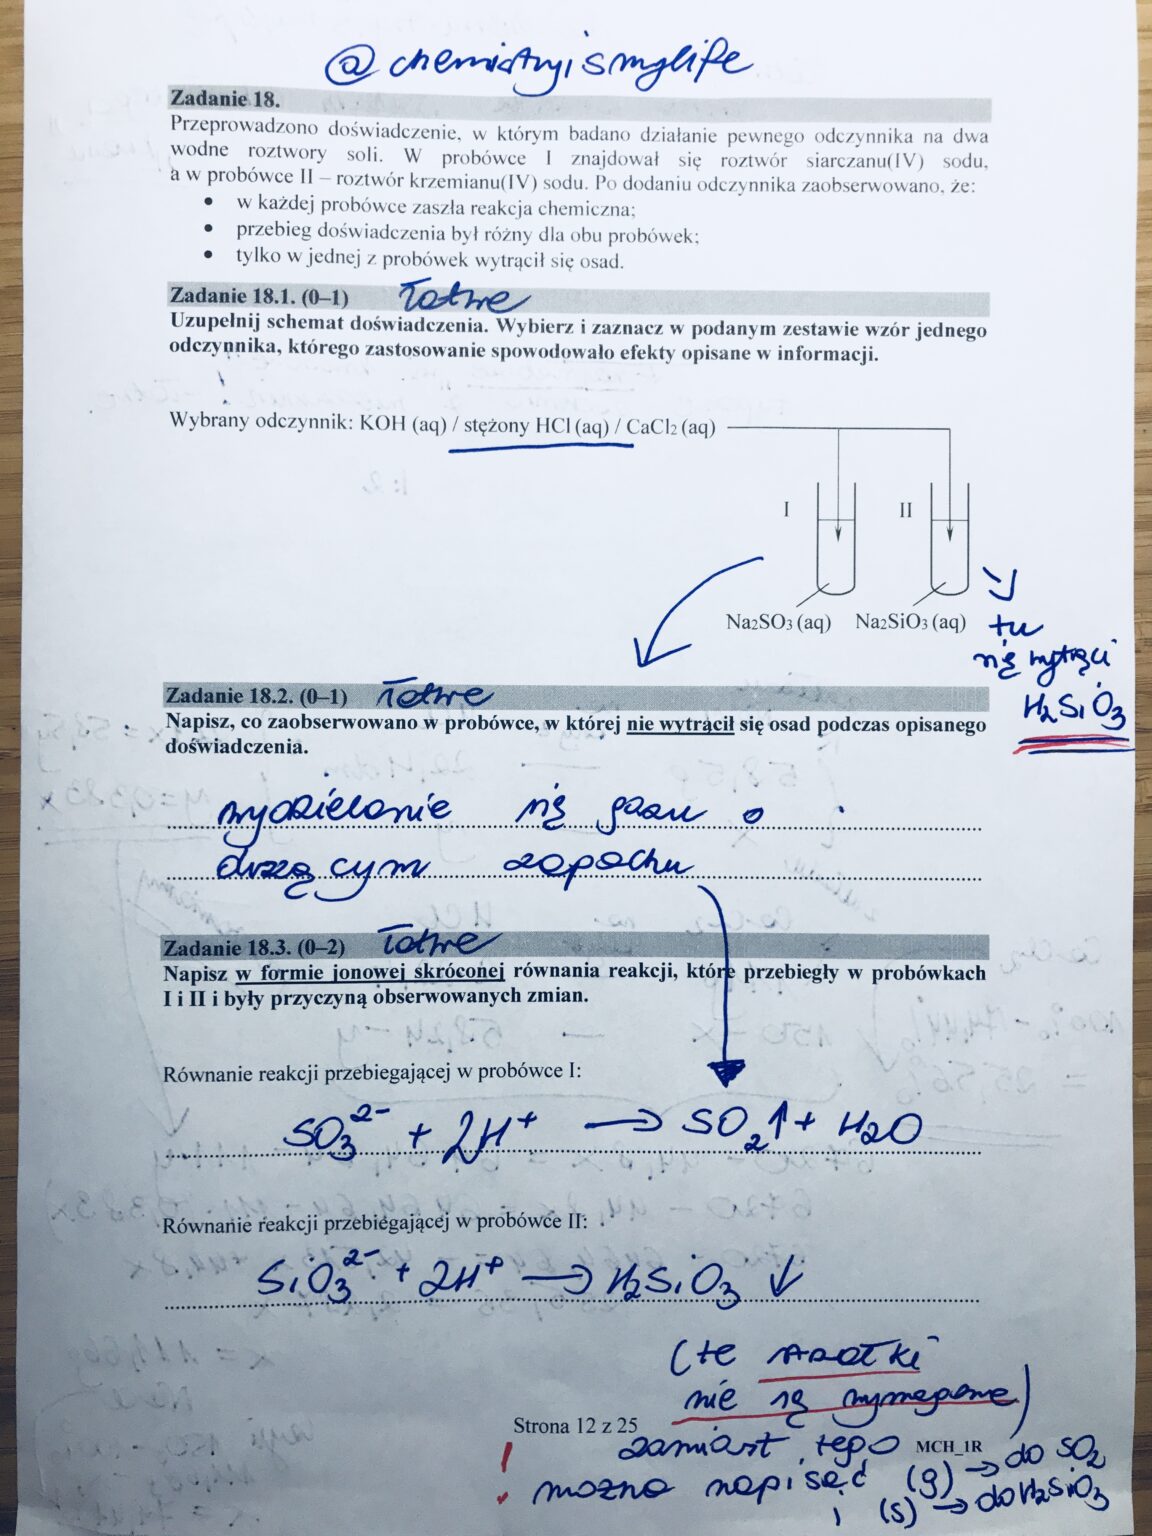 @chemistryismylife
Zadanie 18.
Przeprowadzono doświadczenie, w którym badano działanie pewnego odczynnika na dwa
wodne roztwory soli. W probówce I znajdował się roztwór siarczanu(IV) sodu,
a w probówce II – roztwór krzemianu(IV) sodu. Po dodaniu odczynnika zaobserwowano, że:
• w każdej probówce zaszła reakcja chemiczna;
• przebieg doświadczenia był różny dla obu probówek;
• tylko w jednej z probówek wytrącił się osad.
Zadanie 18.1. (0–1) Łatwe
Uzupełnij schemat doświadczenia. Wybierz i zaznacz w podanym zestawie wzór jednego
odczynnika, którego zastosowanie spowodowało efekty opisane w informacji.
Wybrany odczynnik: KOH (aq) / stężony HCl (aq) / CaCl₂ (aq)
I II
Na₂SO₃ (aq) Na₂SiO₃ (aq) tu
się wytrąci
H₂SiO₃
Zadanie 18.2. (0–1) Łatwe
Napisz, co zaobserwowano w probówce, w której nie wytrącił się osad podczas opisanego
doświadczenia.
wydzielanie się gazu o
drażącym zapachu
Zadanie 18.3. (0–2) Łatwe
Napisz w formie jonowej skróconej równania reakcji, które przebiegły w probówkach
I i II i były przyczyną obserwowanych zmian.
Równanie reakcji przebiegającej w probówce I:
SO₃²⁻ + 2H⁺ → SO₂↑ + H₂O
Równanie reakcji przebiegającej w probówce II:
SiO₃²⁻ + 2H⁺ → H₂SiO₃ ↓
(te strzałki
nie są wymagane)
Strona 12 z 25
zamiast tego MCH_1R
! można napisać (g) → do SO₂
i (s) → do H₂SiO₃